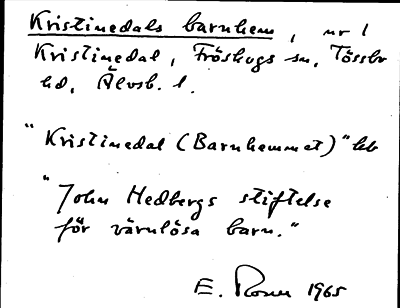 Kristinedals barnhem, nr 1
Kristinedal, Fröskogs sn, Tössbo
hd, Älvsb. l.
"Kristinedal (Barnhemmet)" lbk
"John Hedbergs stiftelse
för värnlösa barn."
E. Rosén 1965